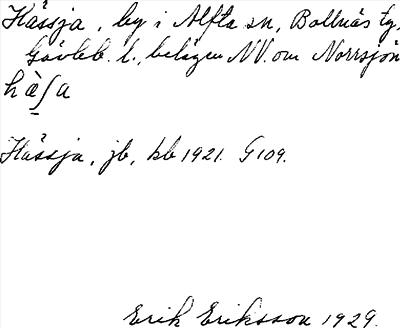 Hässja, by i Alfta sn, Bollnäs tg,
Gävleb. l., belägen NV. om Norrsjön
hä̀ʃa
Hässja, jb, kb 1921. G 109.
Erik Eriksson 1929.